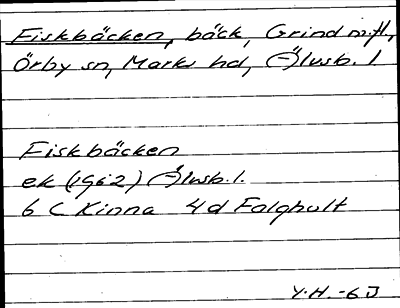 Fiskbäcken, bäck, Grind m.fl.,
Örby sn, Marks hd, Älvsb. l.
Fiskbäcken
ek (1962) Älvsb. l.
6 C Kinna 4d Falghult
Y.H. -63